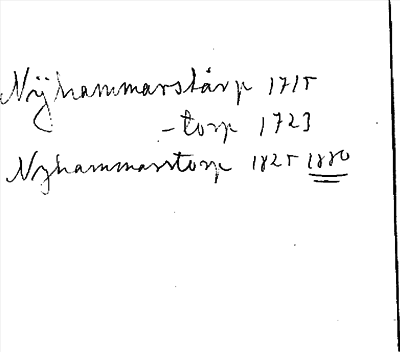 Nÿhammarstårp 1715
-torp 1723
Nyhammarstorp 1825 1880